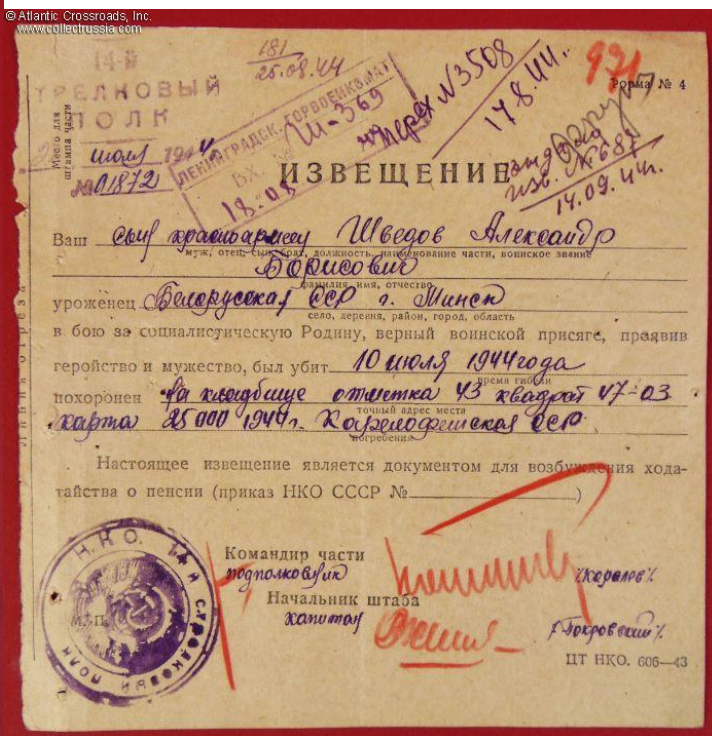 © Atlantic Crossroads, Inc.
www.collectrussia.com
181
25.08.44
14-й
СТРЕЛКОВЫЙ
ПОЛК
Место для
штампа части
июля 1944
№ 01872
ЛЕНИНГРАДСК. ГОРВОЕНКОМАТ
ВХ. №
Ш-369
18.08
№3508
17.8.44г.
931
Форма № 4
изв. №687
14.09.44г.
ИЗВЕЩЕНИЕ
Ваш сын красноармеец Шведов Александр
муж, отец, сын, брат, должность, наименование части, воинское звание
Борисович
фамилия, имя, отчество
уроженец Белорусская ССР г. Минск
село, деревня, район, город, область
в бою за социалистическую Родину, верный воинской присяге, проявив
геройство и мужество, был убит 10 июля 1944 года
время гибели
похоронен на кладбище отметка 43 квадрат 47-03
точный адрес места
карта 25000 1944г. Карелофинская ССР
погребения
Настоящее извещение является документом для возбуждения хода-
тайства о пенсии (приказ НКО СССР № )
Командир части
подполковник
/Королев/
Начальник штаба
капитан
/Покровский/
М. П.
Н.К.О. 14й СТРЕЛКОВЫЙ ПОЛК
ЦТ НКО. 606—43